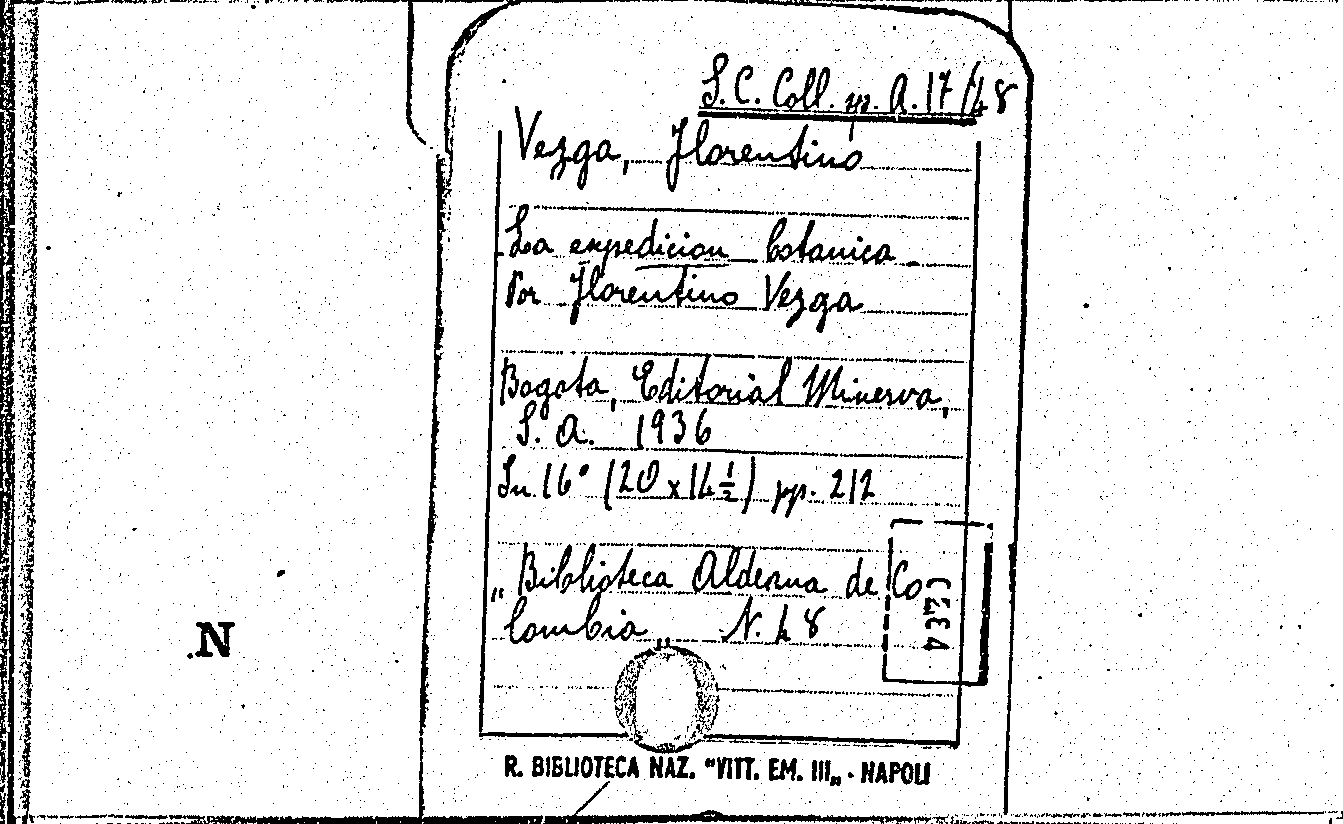 S.C. Coll. sp. A. 17/48
Vezga, Florentino
La expedicion botanica
Por Florentino Vezga
Bogota, Editorial Minerva,
S. A. 1936
In 16° (20 x 14 ½) pp. 212
„Biblioteca Aldeana de Co
lombia„ N. 48
N
R. BIBLIOTECA NAZ. "VITT. EM. III„ · NAPOLI